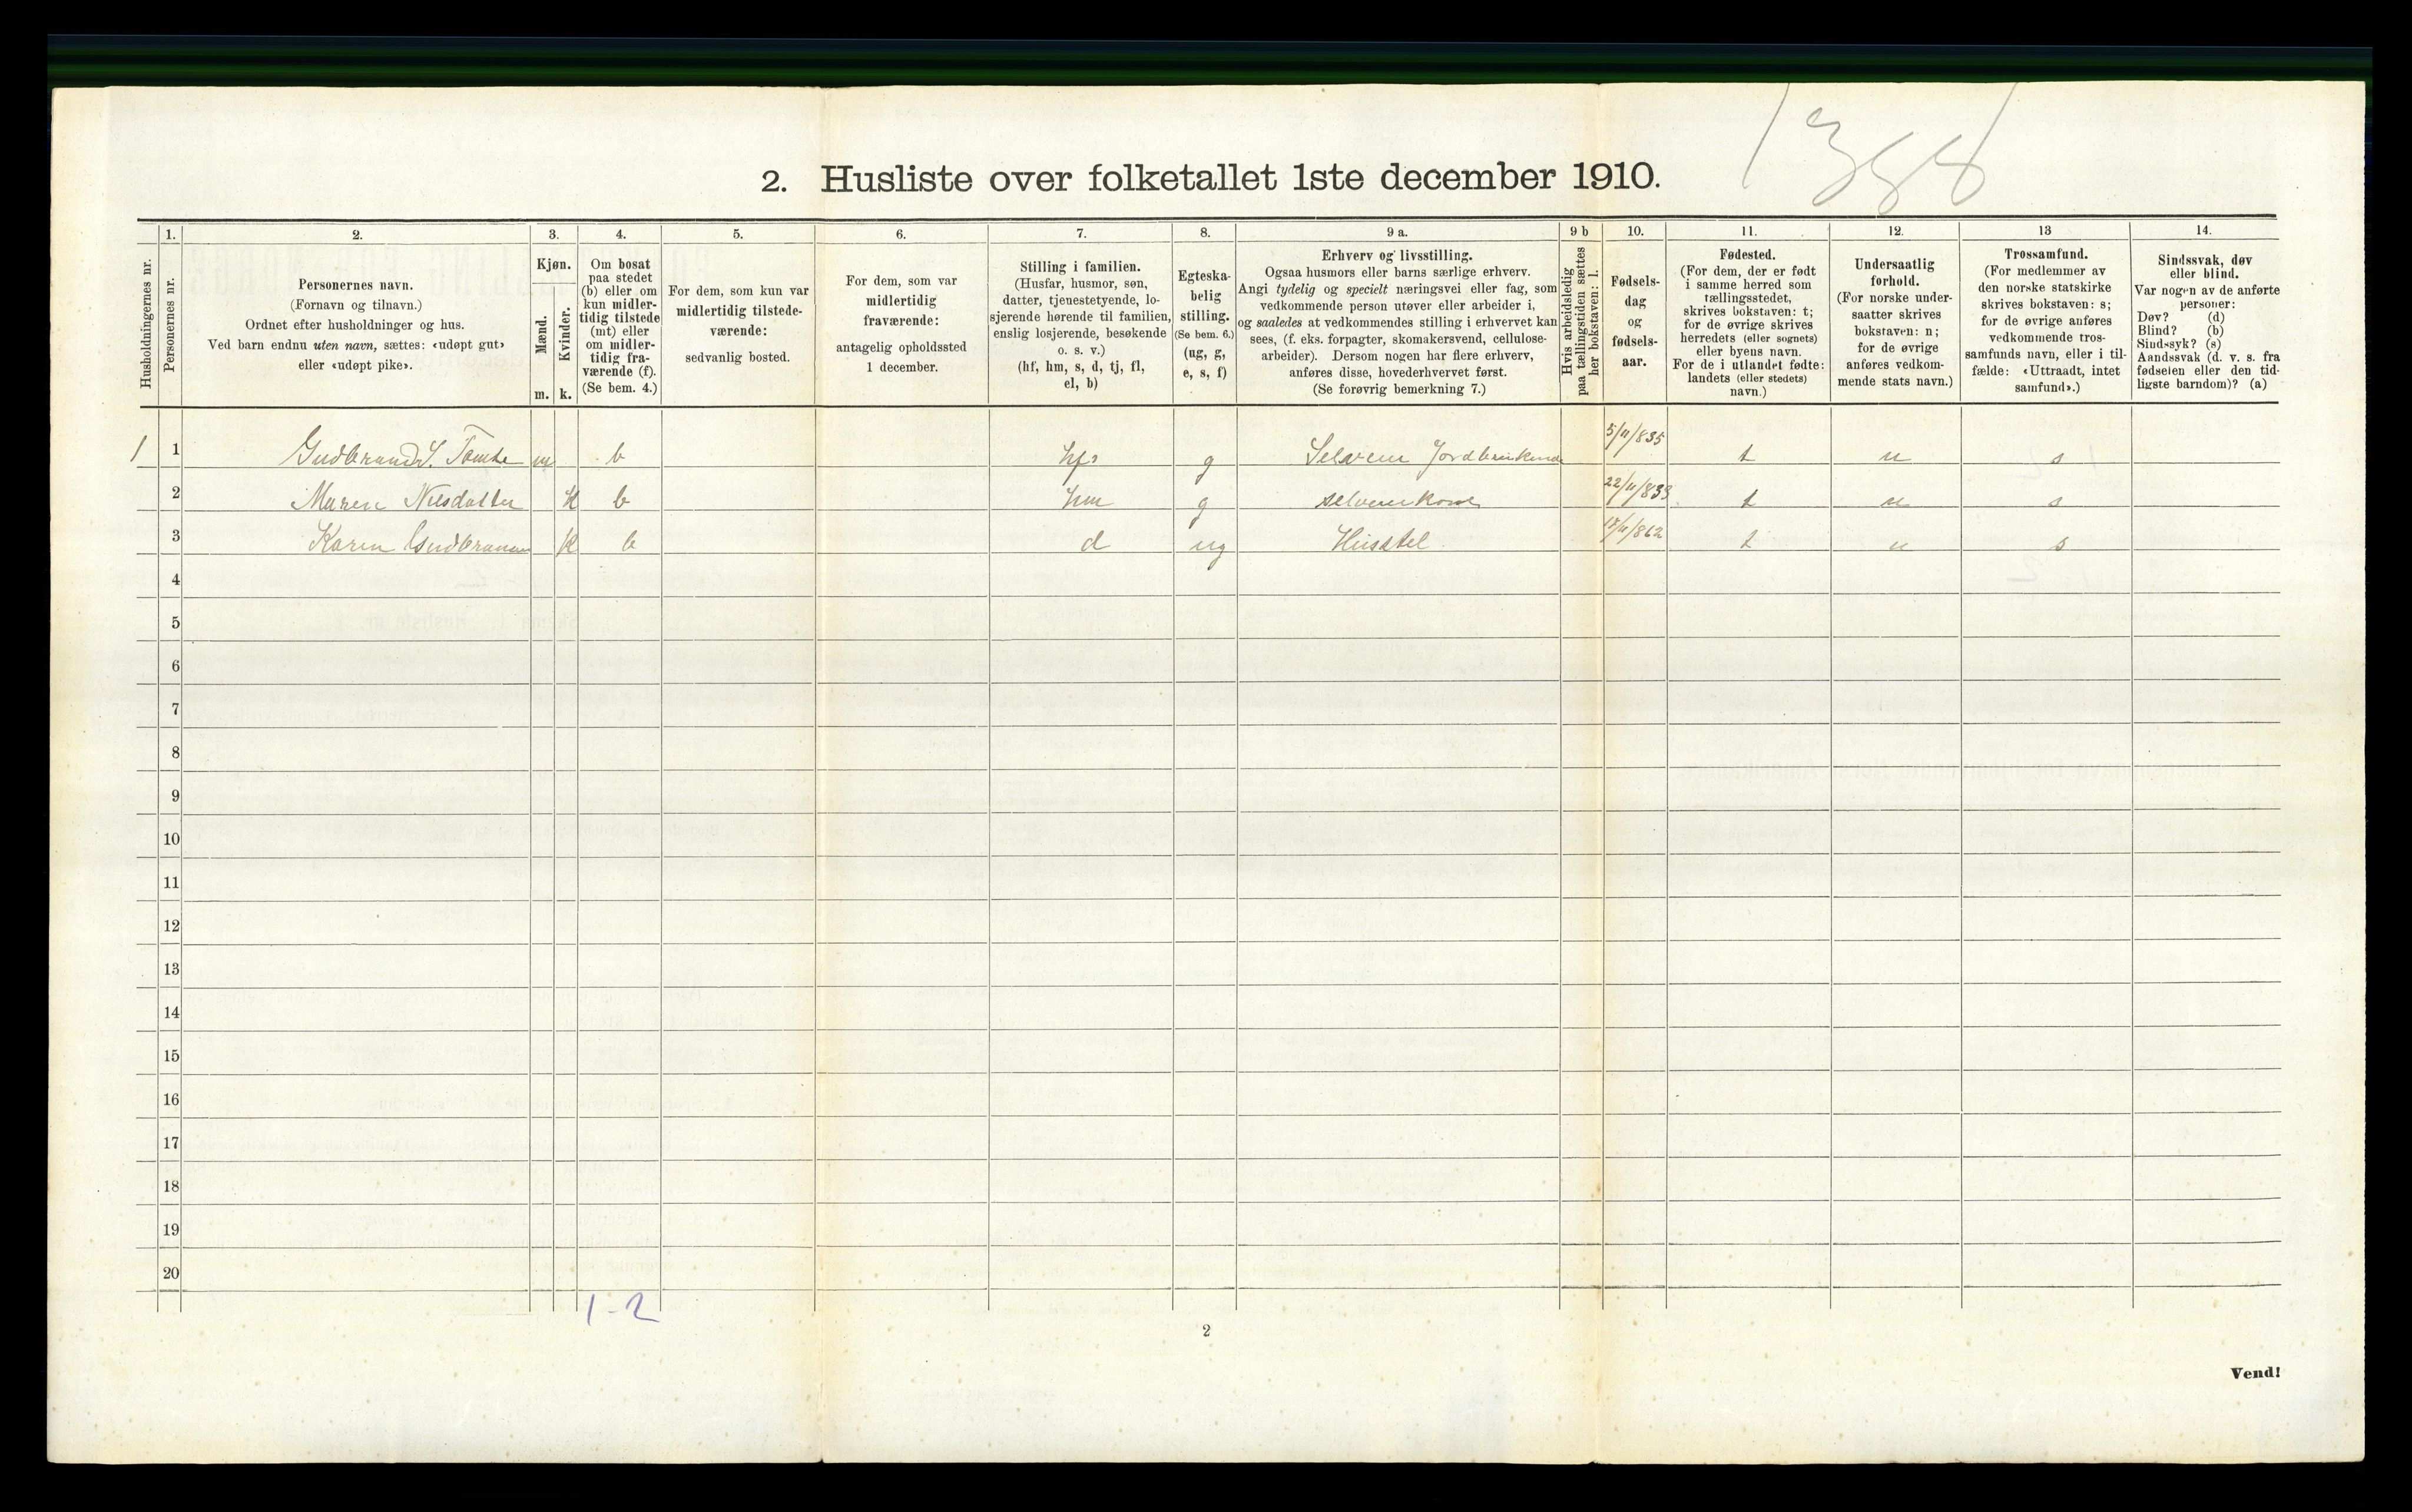 2. Husliste over folketallet 1ste december 1910.
Husholdningernes nr.
1.
Personernes nr.
2.
Personernes navn.
(Fornavn og tilnavn.)
Ordnet efter husholdninger og hus.
Ved barn endnu uten navn, sættes: «udøpt gut»
eller «udøpt pike».
3.
Kjøn.
Mænd.
Kvinder.
m. k.
4.
Om bosat
paa stedet
(b) eller om
kun midler-
tidig tilstede
(mt) eller
om midler-
tidig fra-
værende (f).
(Se bem. 4.)
5.
For dem, som kun var
midlertidig tilstede-
værende:
sedvanlig bosted.
6.
For dem, som var
midlertidig
fraværende:
antagelig opholdssted
1 december.
7.
Stilling i familien.
(Husfar, husmor, søn,
datter, tjenestetyende, lo-
sjerende hørende til familien,
enslig losjerende, besøkende
o. s. v.)
(hf, hm, s, d, tj, fl,
el, b)
8.
Egteska-
belig
stilling.
(Se bem. 6.)
(ug, g,
e, s, f)
9 a.
Erhverv og livsstilling.
Ogsaa husmors eller barns særlige erhverv.
Angi tydelig og specielt næringsvei eller fag, som
vedkommende person utøver eller arbeider i,
og saaledes at vedkommendes stilling i erhvervet kan
sees, (f. eks. forpagter, skomakersvend, cellulose-
arbeider). Dersom nogen har flere erhverv,
anføres disse, hovederhvervet først.
(Se forøvrig bemerkning 7.)
9 b
Hvis arbeidsledig
paa tællingstiden sættes
her bokstaven: l.
10.
Fødsels-
dag
og
fødsels-
aar.
11.
Fødested.
(For dem, der er født
i samme herred som
tællingsstedet,
skrives bokstaven: t;
for de øvrige skrives
herredets (eller sognets)
eller byens navn.
For de i utlandet fødte:
landets (eller stedets)
navn.)
12.
Undersaatlig
forhold.
(For norske under-
saatter skrives
bokstaven: n;
for de øvrige
anføres vedkom-
mende stats navn.)
13
Trossamfund.
(For medlemmer av
den norske statskirke
skrives bokstaven: s;
for de øvrige anføres
vedkommende tros-
samfunds navn, eller i til-
fælde: «Uttraadt, intet
samfund».)
14.
Sindssvak, døv
eller blind.
Var nogen av de anførte
personer:
Døv? (d)
Blind? (b)
Sindssyk? (s)
Aandssvak (d. v. s. fra
fødselen eller den tid-
ligste barndom)? (a)
1 1 Gudbrand S. Tomte m b hf g Selveier Jordbruker 5/11/835 t n s
2 Maren Nilsdatter k b hm g selveierkone 22/11/833 t n s
3 Karen Gudbrandsen k b d ug Husstel /862 t n s
4
5
6
7
8
9
10
11
12
13
14
15
16
17
18
19
20
1-2
2
Vend!